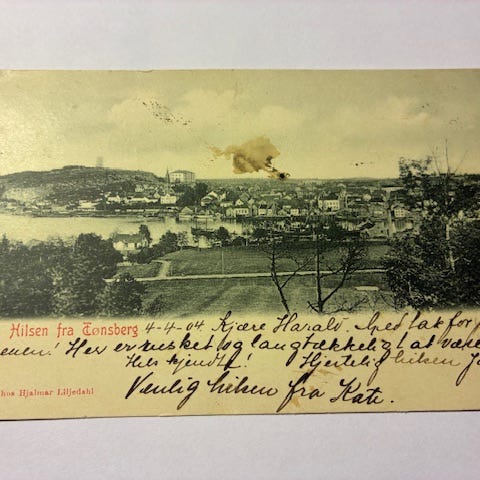 Hilsen fra Tønsberg 4-4-04 Kjære Harald. Med tak for
Her er rusket og langtrækkeligt at være
Hils kjendte! Hjertelig hilsen
Venlig hilsen fra Kate.
hos Hjalmar Liljedahl